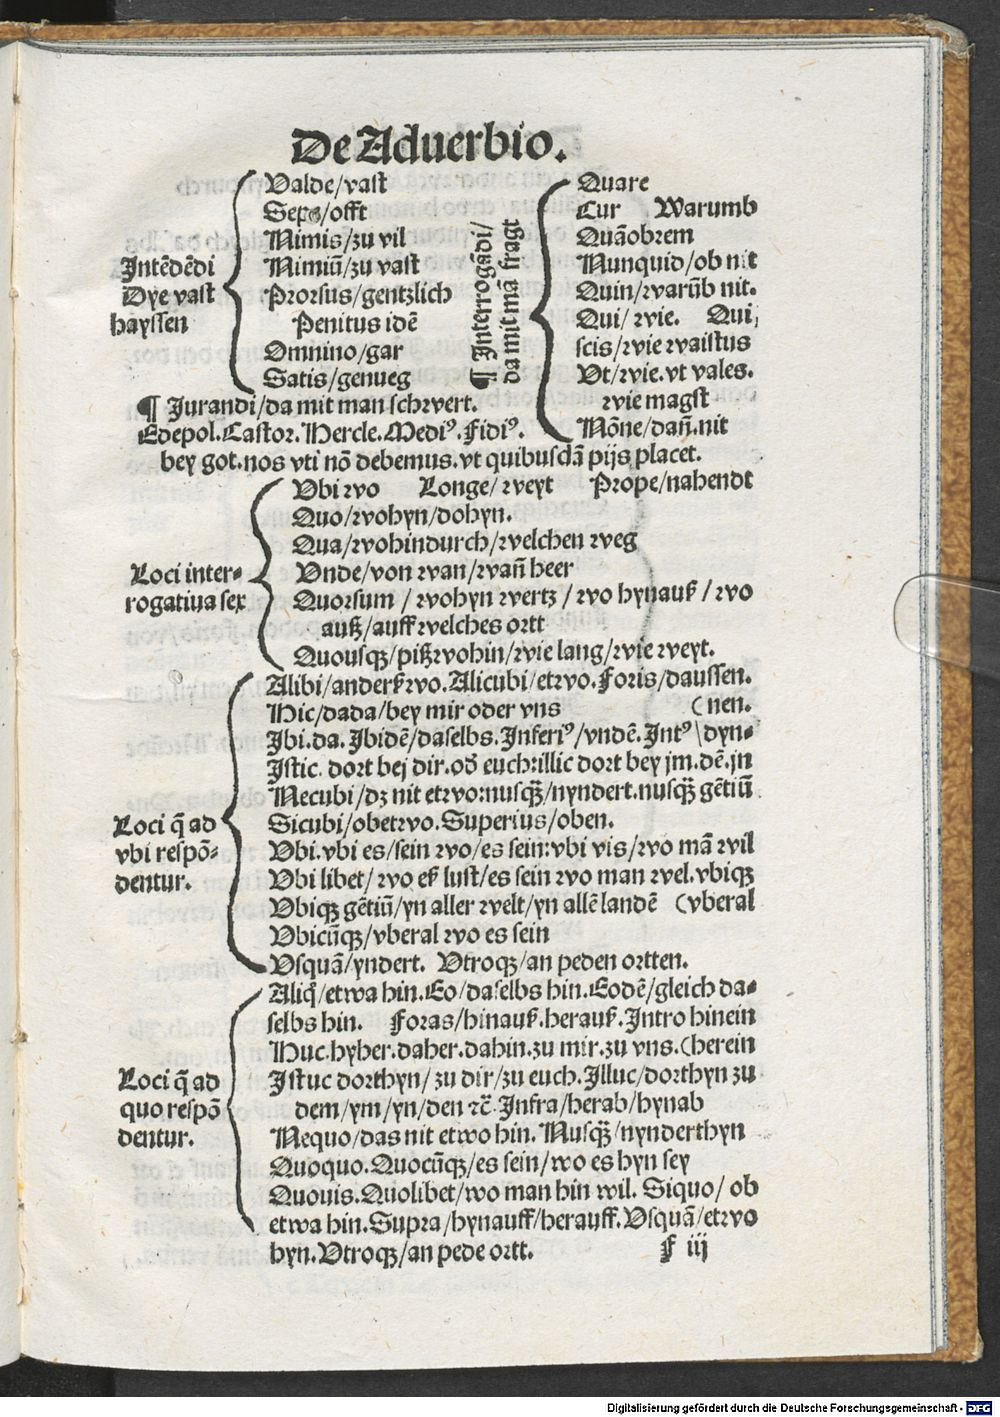 De Aduerbio.
Intēdēdi
Dye vast
hayssen
Valde/vast
Sepe/offt
Nimis/zu vil
Nimiū/zu vast
Prorsus/gentzlich
Penitus idē
Omnino/gar
Satis/genueg
¶ Interrogādi/
da mit mā fragt
Quare
Cur Warumb
Quāobrem
Nunquid/ob nit
Quin/warūb nit.
Qui/wie. Qui
scis/wie waistus
Vt/wie.vt vales.
wie magst
Nōne/dañ.nit
¶ Jurandi/da mit man schwert.
Edepol.Castor.Hercle.Mediꝰ.Fidiꝰ.
bey got.nos vti nō debemus.vt quibusdā pijs placet.
Loci inter-
rogatiua sex
Vbi wo Longe/weyt Prope/nahendt
Quo/wohyn/dohyn.
Qua/wohindurch/welchen weg
Vnde/von wan/wañ heer
Quorsum/wohyn wertz/wo hynauß/wo
auß/auff welches ortt
Quousqꝫ/pißwohin/wie lang/wie weyt.
Loci q̄ ad
vbi respō-
dentur.
Alibi/anderßwo.Alicubi/etwo.Foris/daussen.
Hic/dada/bey mir oder vns (nen.
Ibi.da.Ibidē/daselbs.Inferiꝰ/vndē.Intꝰ/dyn-
Istic.dort bej dir.od̄ euch:illic dort bey jm.dē.jn
Necubi/dz nit etwo:nusqꝫ̄/nyndert.nusqꝫ̄ gētiū
Sicubi/obetwo.Superius/oben.
Vbi.vbi es/sein wo/es sein:vbi vis/wo mā wil
Vbi libet/wo eß lust/es sein wo man wel.vbiqꝫ
Vbiqꝫ gētiū/yn aller welt/yn allē landē (vberal
Vbicūqꝫ/vberal wo es sein
Vsquā/yndert. Vtroqꝫ/an peden ortten.
Loci q̄ ad
quo respō
dentur.
Aliq̄/etwa hin.Eo/daselbs hin.Eodē/gleich da-
selbs hin. Foras/hinauß.herauß.Intro hinein
Huc.hyher.daher.dahin.zu mir.zu vns.(herein
Istuc dorthyn/zu dir/zu euch.Illuc/dorthyn zu
dem/ym/yn/den ⁊c̄.Infra/herab/hynab
Nequo/das nit etwo hin.Nusqꝫ̄/nynderthyn
Quoquo.Quocūqꝫ/es sein/wo es hyn sey
Quouis.Quolibet/wo man hin wil. Siquo/ob
etwa hin.Supra/hynauff/herauff.Vsquā/etwo
hyn.Vtroqꝫ/an pede ortt. F iij
Digitalisierung gefördert durch die Deutsche Forschungsgemeinschaft - DFG